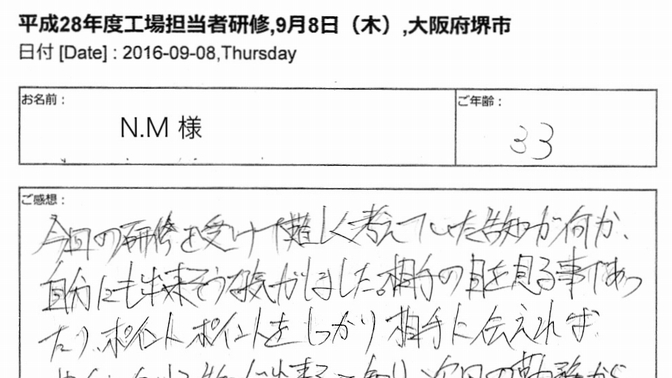 平成28年度工場担当者研修,9月8日（木）,大阪府堺市
日付 [Date] : 2016-09-08,Thursday
お名前：
N.M 様
ご年齢：
33
ご感想：
今回の研修を受けて難しく考えていた告知が何か、
自分にも出来そうな気がしました。相手の目を見る事であっ
たり、ポイントポイントをしっかり相手に伝えれば
出来る 次回の勤務から